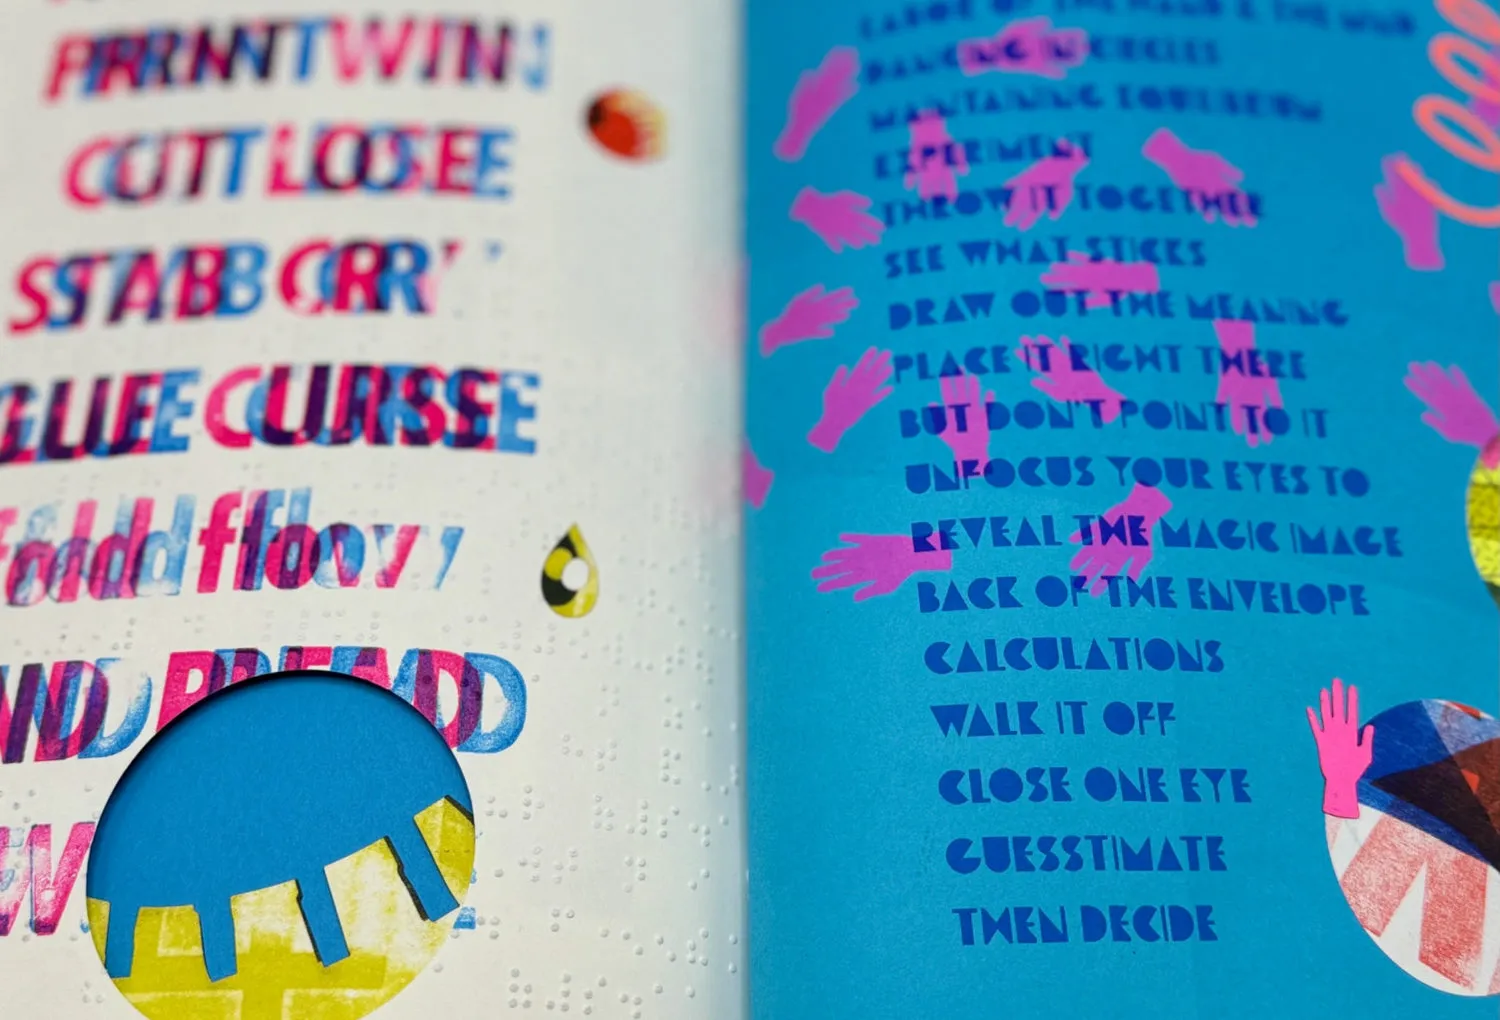 PRINT WIN
CUT LOSE
STAB CRY
GLUE CURSE
fold flow
LABOR OF THE HAND & THE MIND
DANCING IN CIRCLES
MAINTAINING EQUILIBRIUM
EXPERIMENT
THROW IT TOGETHER
SEE WHAT STICKS
DRAW OUT THE MEANING
PLACE IT RIGHT THERE
BUT DON'T POINT TO IT
UNFOCUS YOUR EYES TO
REVEAL THE MAGIC IMAGE
BACK OF THE ENVELOPE
CALCULATIONS
WALK IT OFF
CLOSE ONE EYE
GUESSTIMATE
THEN DECIDE